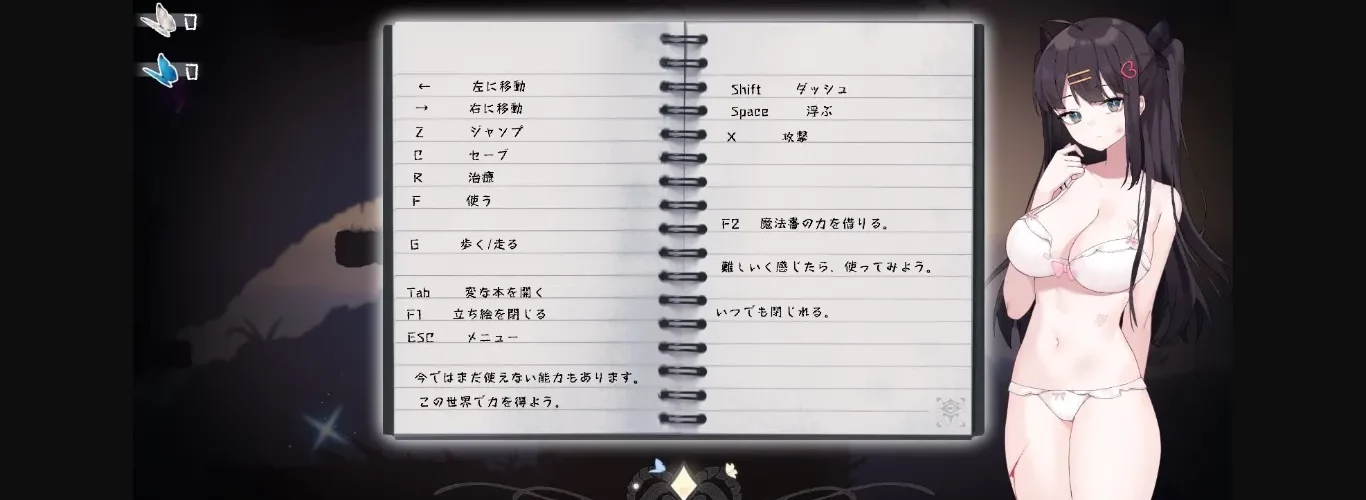 ← 左に移動
→ 右に移動
Z ジャンプ
C セーブ
R 治療
F 使う
G 歩く/走る
Tab 変な本を開く
F1 立ち絵を閉じる
ESC メニュー
今ではまだ使えない能力もあります。
この世界で力を得よう。
Shift ダッシュ
Space 浮ぶ
X 攻撃
F2 魔法書の力を借りる。
難しいく感じたら、使ってみよう。
いつでも閉じれる。